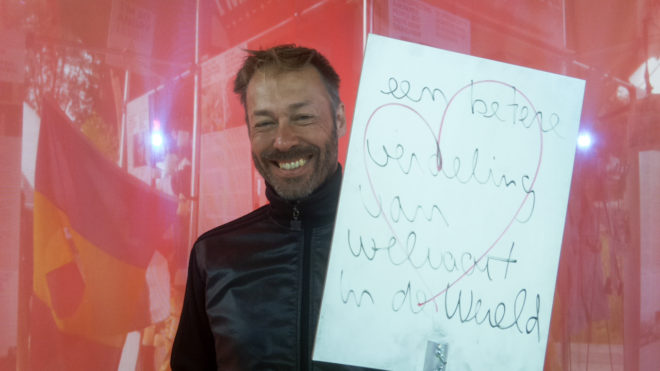 een betere
verdeling
van
welvaart
in de Wereld